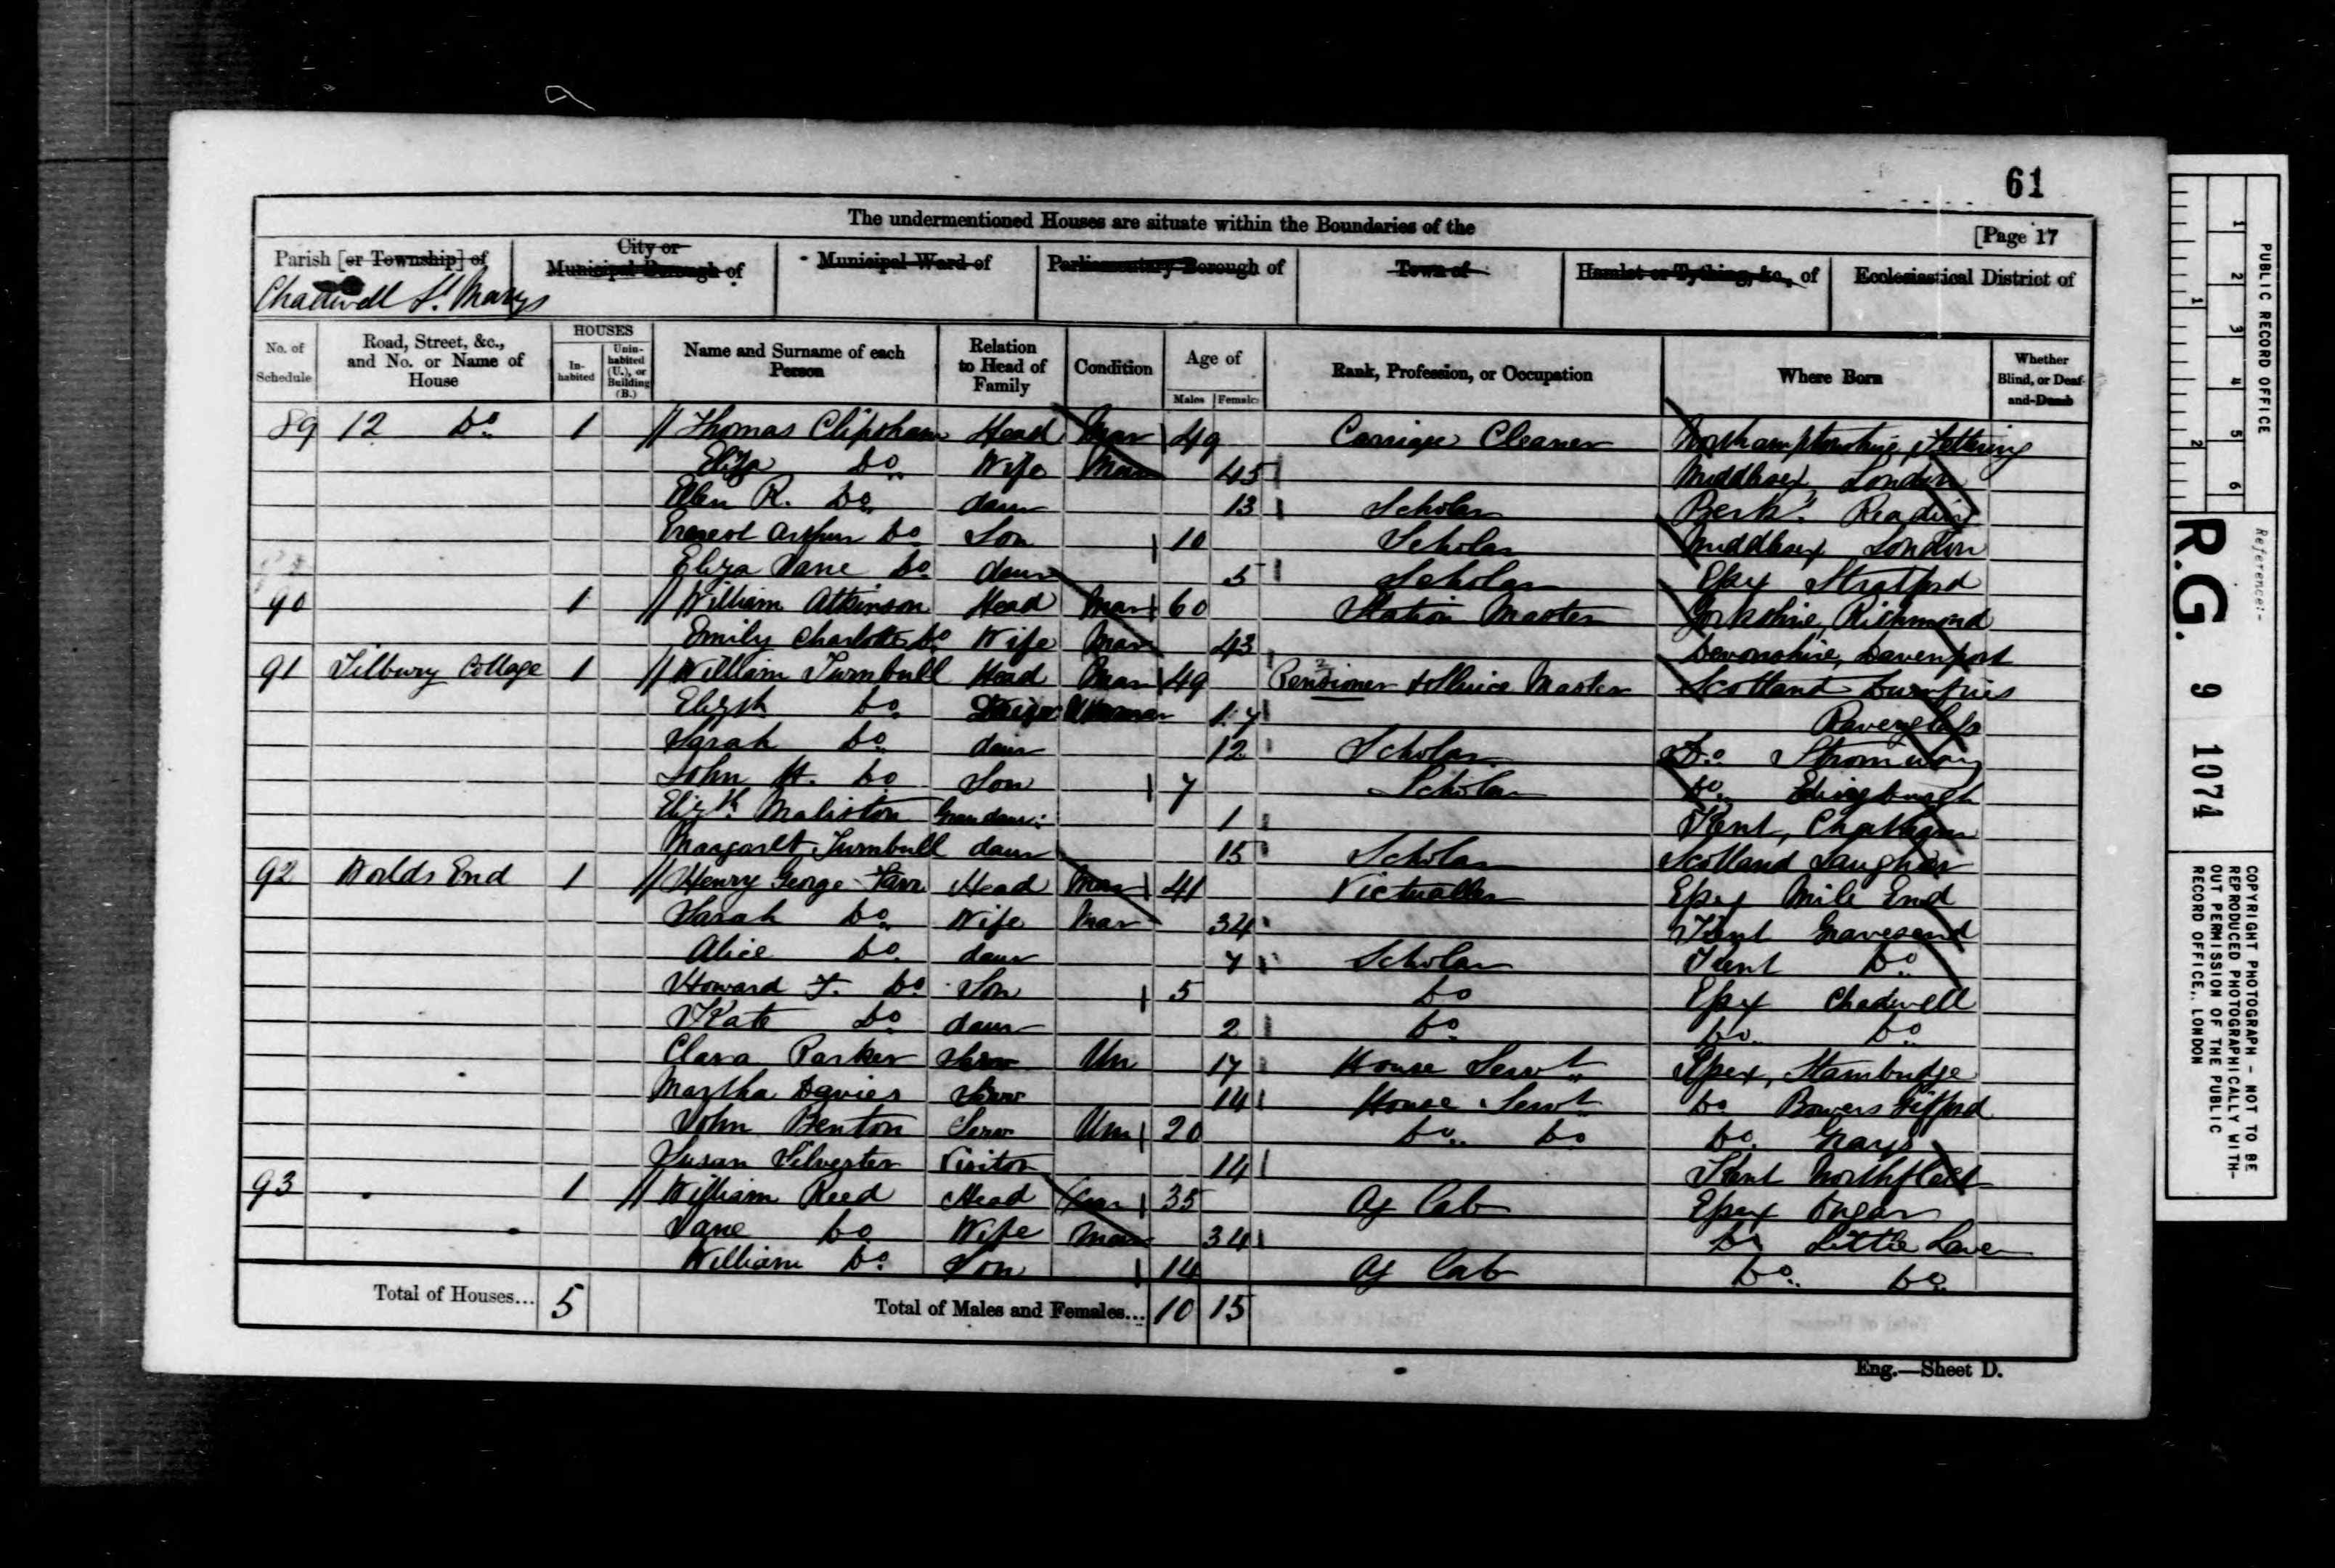 61
The undermentioned Houses are situate within the Boundaries of the
[Page 17
Parish [or Township] of
City or Municipal Borough of
Municipal Ward of
Parliamentary Borough of
Town of
Hamlet or Tything, &c., of
Ecclesiastical District of
Chadwell St. Marys
No. of Schedule
Road, Street, &c., and No. or Name of House
HOUSES
In-habited
Unin-habited (U.), or Building (B.)
Name and Surname of each Person
Relation to Head of Family
Condition
Age of
Males
Females
Rank, Profession, or Occupation
Where Born
Whether Blind, or Deaf-and-Dumb
89 12 Do. 1 Thomas Clipsham Head Mar 49 Carriage Cleaner Northamptonshire, Kettering
Eliza Do. Wife Mar 45 Middlesex London
Ellen R. Do. daur 13 Scholar Berks. Reading
Ernest Arthur Do Son 10 Scholar Middlesex London
Eliza Jane Do. daur 5 Scholar Essex Stratford
90 1 William Atkinson Head Mar 60 Station Master Yorkshire, Richmond
Emily Charlotte Do Wife Mar 43 Devonshire, Davenport
91 Tilbury Cottage 1 William Turnbull Head Mar 49 Pensioner & Master Scotland Dumfries
Elizth Do. 17
Sarah Do. daur 12 Scholar Do.
John H. Do Son 7 Scholar Do.
Elizth. Grandaur. 1 Kent, Chatham
Margaret Turnbull daur 15 Scholar Scotland
92 Worlds End 1 Henry George Head Mar 41 Victualler Essex Mile End
Sarah Do. Wife Mar 34 Kent Gravesend
Alice Do. daur 7 Scholar Kent Do.
Howard F. Do Son 5 Do Essex Chadwell
Kate Do daur 2 Do. Do. Do.
Clara Parker Serv Un 17 House Servt. Essex, Stambridge
Martha Davies Serv 14 House Servt. Do. Bowers Gifford
John Benton Serv Un 20 Do.. Do Do. Grays
Susan Silvester Visitor 14 Kent Northfleet
93 1 William Reed Head Mar 35 Ag Lab Essex Ongar
Jane Do Wife Mar 34 Do Little Laver
William Do. Son 14 Ag Lab Do.. Do.
Total of Houses... 5
Total of Males and Females... 10 15
Eng.—Sheet D.
PUBLIC RECORD OFFICE
1 2 3 4 5 6
1 2
Reference:-
R.G. 9 1074
COPYRIGHT PHOTOGRAPH - NOT TO BE
REPRODUCED PHOTOGRAPHICALLY WITH-
OUT PERMISSION OF THE PUBLIC
RECORD OFFICE, LONDON